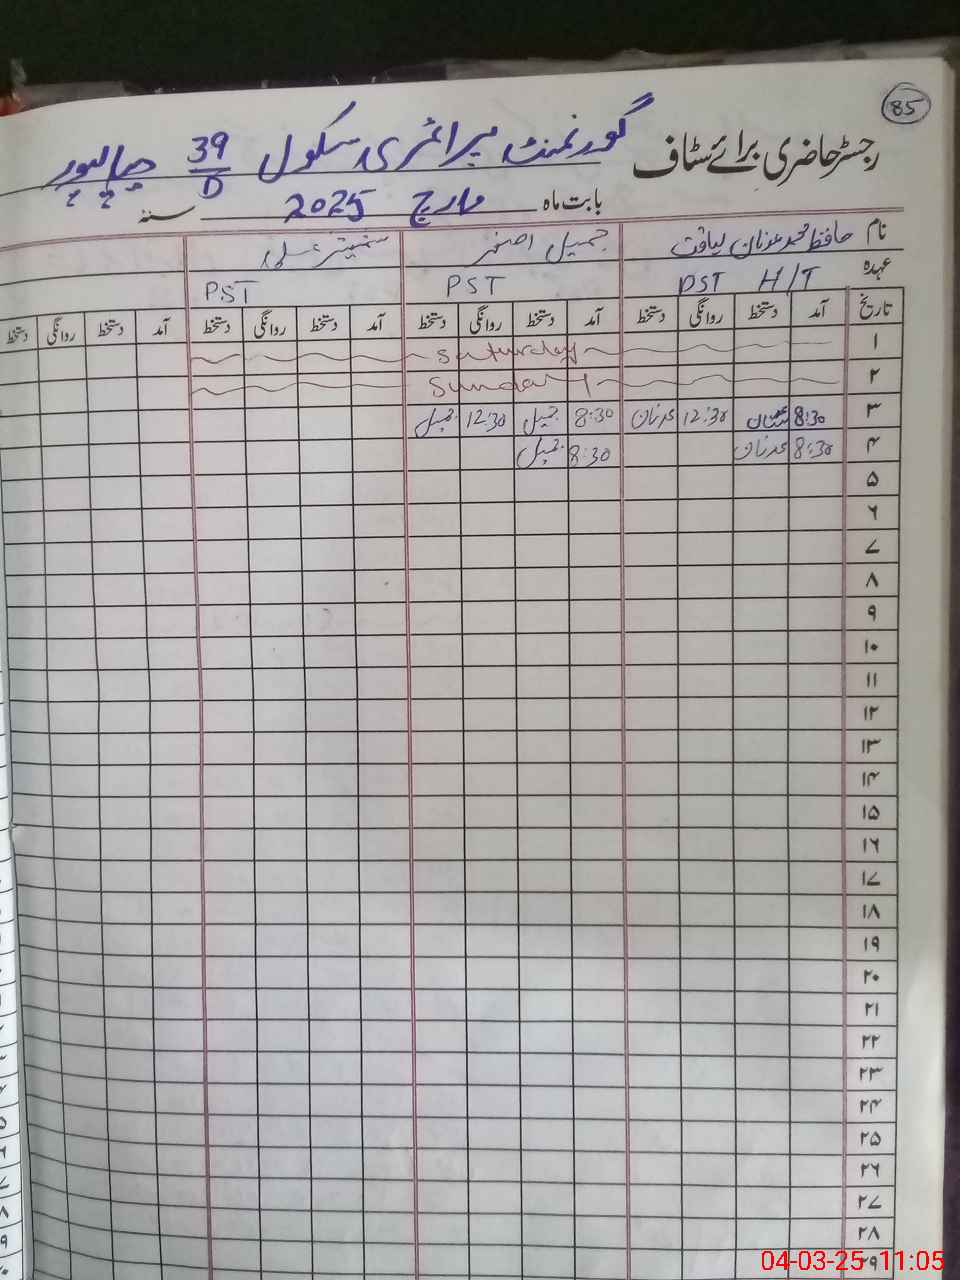 85
رجسٹر حاضری برائے سٹاف گورنمنٹ پرائمری سکول 39/D
بابت ماہ مارچ 2025 سنہ
نام حافظ محمد عدنان لیاقت جمیل اصغر
عہدہ PST H/T PST PST
تاریخ آمد دستخط روانگی دستخط آمد دستخط روانگی دستخط آمد دستخط روانگی دستخط آمد دستخط روانگی دستخط
۱ Saturday
۲ Sunday
۳ 8:30 عدنان 12:30 عدنان 8:30 جمیل 12:30 جمیل
۴ 8:30 عدنان 8:30 جمیل
۵
۶
۷
۸
۹
۱۰
۱۱
۱۲
۱۳
۱۴
۱۵
۱۶
۱۷
۱۸
۱۹
۲۰
۲۱
۲۲
۲۳
۲۴
۲۵
۲۶
۲۷
۲۸
۲۹
04-03-25 11:05